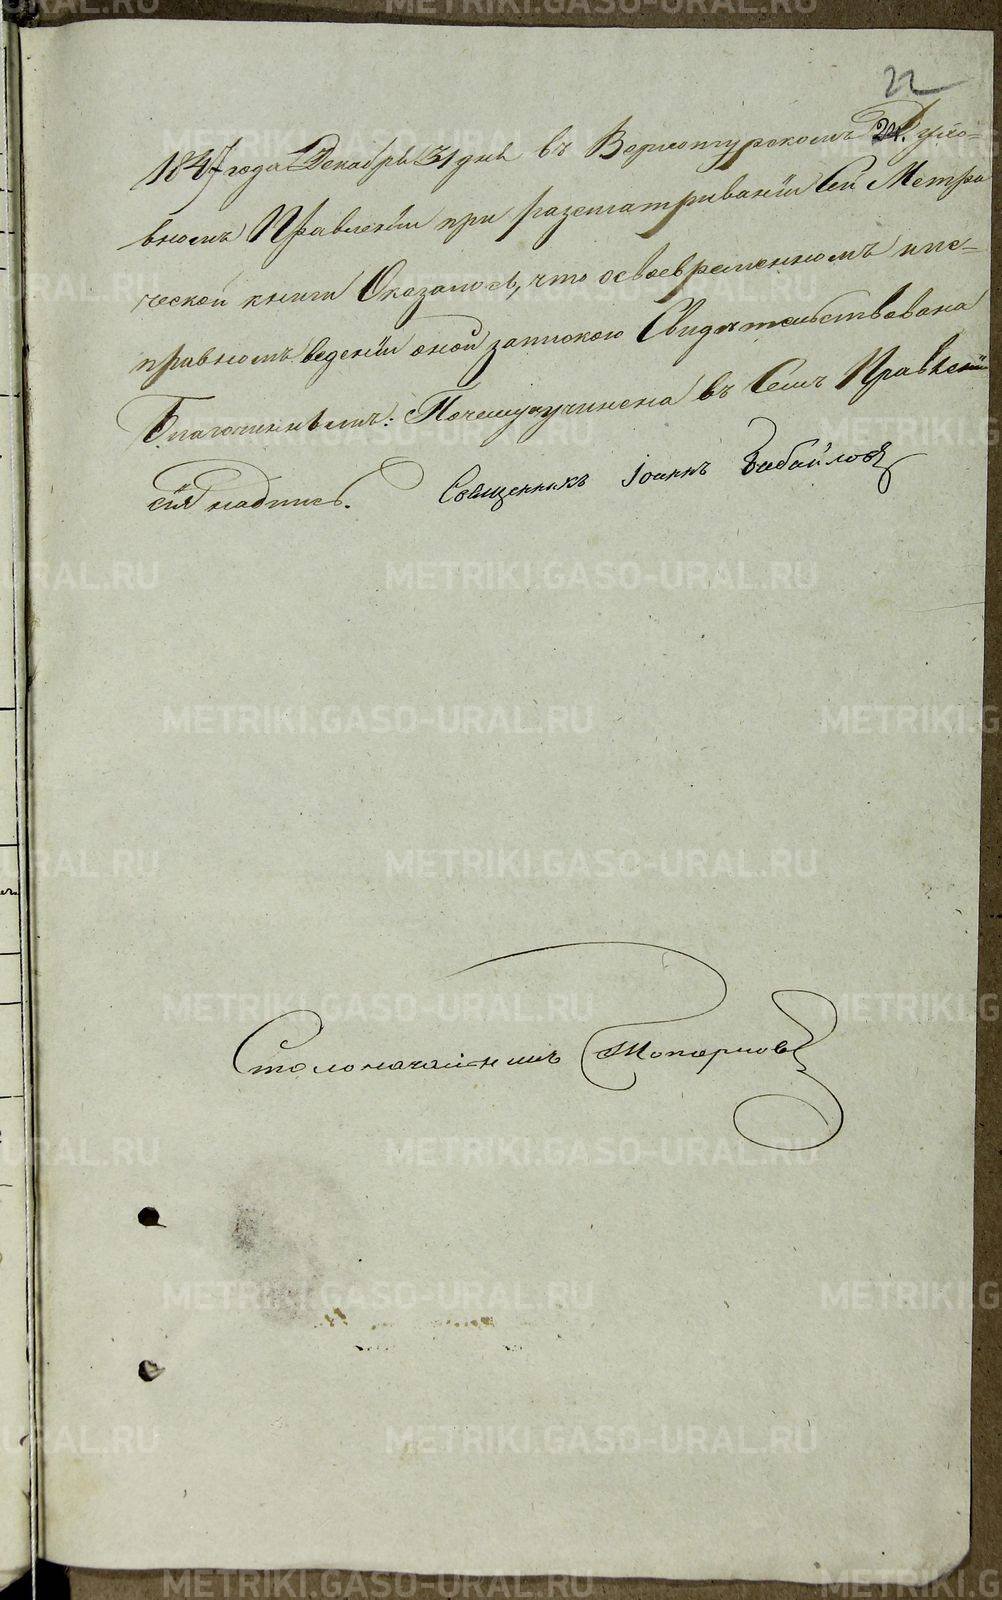 22
1847 года Декабря 31 дня въ Верхотурскомъ Духо-
вномъ Правленіи при разсматриваніи сей Метри
ческой книги Оказалось, что о своевременномъ и ис-
правномъ веденіи оной запискою Свидетельствована
Благочиннымъ: Почему учинена въ Семъ Правленіи
сія надпись. Священникъ Іоаннъ Бабайловъ
Столоначальникъ Топорковъ
METRIKI.GASO-URAL.RU